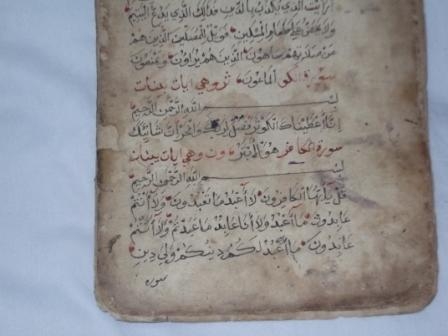 ارايت الذي يكذب بالدين فذلك الذي يدع اليتيم
ولا يحض على طعام المسكين فويل للمصلين الذين هم
عن صلاتهم ساهون الذين هم يراؤن ويمنعون
الماعون سورة الكو ثر وهي ايات بينات
بسم الله الرحمن الرحيم
انا اعطيناك الكوثر فصل لربك وانحر ان شانئك
هو الابتر سورة الكافر ون وهي ايات بينات
بسم الله الرحمن الرحيم
قل يايها الكافرون لا اعبد ما تعبدون ولا انتم
عابدون ما اعبد ولا انا عابد ما عبدتم ولا انتم
عابدون ما اعبد لكم دينكم ولي دين
سورة